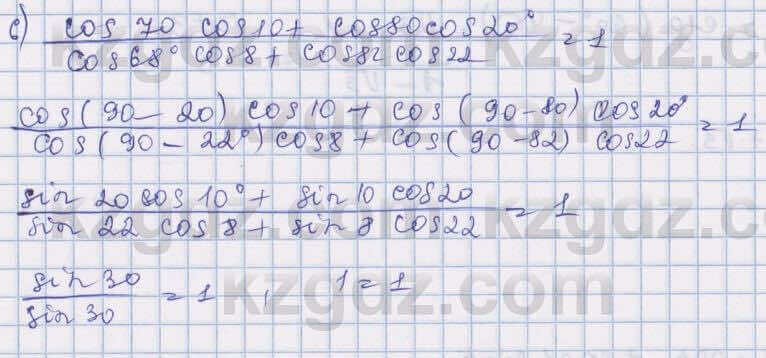 б) cos 70 cos 10 + cos 80 cos 20° / cos 68° cos 8 + cos 82 cos 22 = 1
cos (90 - 20) cos 10 + cos (90 - 80) cos 20° / cos (90 - 22°) cos 8 + cos (90 - 82) cos 22 = 1
sin 20 cos 10° + sin 10 cos 20 / sin 22 cos 8 + sin 8 cos 22 = 1
sin 30 / sin 30 = 1 , 1 = 1
kzgdz.com